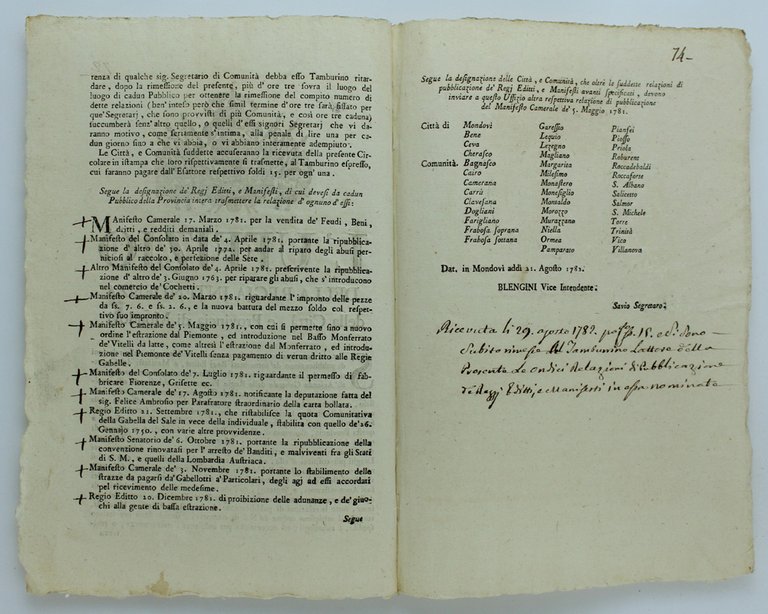 renza di qualche sig. Segretario di Comunità debba esso Tamburino ritar-
dare, dopo la rimessione del presente, più d' ore tre sovra il luogo del
luogo di cadun Pubblico per ottenere la rimessione del compito numero di
dette relazioni (ben' inteso però che simil termine d'ore tre sarà fissato per
que'Segretarj, che sono provvisti di più Comunità, e così ore tre caduna)
succumberà senz'altro quello, o quelli d'essi signori Segretarj che vi da-
ranno motivo, come seriamente s'intima, alla penale di lire una per ca-
dun giorno sino a che vi abbia, o vi abbiano interamente adempiuto.
Le Città, e Comunità suddette accuseranno la ricevuta della presente Cir-
colare in istampa che loro rispettivamente si trasmette, al Tamburino espresso,
cui saranno pagare dall'Esattore respettivo soldi 15. per ogn' una.
Segue la designazione de' Regj Editti, e Manifesti, di cui devesi da cadun
Pubblico della Provincia intera trasmettere la relazione d'ognuno d'essi:
Manifesto Camerale 17. Marzo 1781. per la vendita de' Feudi, Beni,
dritti, e redditi demaniali.
Manifesto del Consolato in data de' 4. Aprile 1781. portante la ripubblica-
zione d' altro de' 30. Aprile 1772. per andar al riparo degli abusi per-
niciosi al raccolto, e perfezione delle Sete.
Altro Manifesto del Consolato de' 4. Aprile 1781. prescrivente la ripubblica-
zione d'altro de' 3. Giugno 1763. per riparare gli abusi, che s'introducono
nel comercio de' Cochetti.
Manifesto Camerale de' 20. Marzo 1781. riguardante l' impronto delle pezze
da ss. 7. 6. e ss. 2. 6., e la nuova battuta del mezzo soldo col respet-
tivo suo impronto.
Manifesto Camerale de' 5. Maggio 1781., con cui si permette sino a nuovo
ordine l'estrazione dal Piemonte, ed introduzione nel Basso Monferrato
de'Vitelli da latte, come altresì l'estrazione dal Monferrato, ed introdu-
zione nel Piemonte de'Vitelli senza pagamento di verun dritto alle Regie
Gabelle.
Manifesto del Consolato de' 7. Luglio 1781. riguardante il permesso di fab-
bricare Fiorenze, Grisette ec.
Manifesto Camerale de' 17. Agosto 1781. notificante la deputazione fatta del
sig. Felice Ambrosio per Parafratore straordinario della carta bollata.
Regio Editto 21. Settembre 1781., che ristabilisce la quota Comunitativa
della Gabella del Sale in vece della individuale, stabilita con quello de'26.
Gennajo 1750., con varie altre provvidenze.
Manifesto Senatorio de' 6. Ottobre 1781. portante la ripubblicazione della
convenzione rinovatasi per l' arresto de' Banditi, e malviventi fra gli Stati
di S. M., e quelli della Lombardia Austriaca.
Manifesto Camerale de' 3. Novembre 1781. portante lo stabilimento delle
strazze da pagarsi da'Gabellotti a'Particolari, degli agj ad essi accordati
pel ricevimento delle medesime.
Regio Editto 20. Dicembre 1781. di proibizione delle adunanze, e de' giuo-
chi alla gente di bassa estrazione.
Segue
74-
Segue la designazione delle Città, e Comunità, che oltre le suddette relazioni di
pubblicazione de' Regj Editti, e Manifesti avanti specificati, devono
inviare a questo Uffizio altra respettiva relazione di pubblicazione
del Manifesto Camerale de' 5. Maggio 1781.
Città di Mondovì Garessio Pianfei
Bene Lequio Piosso
Ceva Lezegno Priola
Cherasco Magliano Roburent
Comunità. Bagnasco Margarita Roccadebaldi
Cairo Milesimo Roccaforte
Camerana Monastero S. Albano
Carrù Monesiglio Salicetto
Clavesana Montaldo Salmor
Dogliani Morozzo S. Michele
Farigliano Murazzano Torre
Frabosa soprana Niella Trinità
Frabosa sottana Ormea Vico
Pamparato Villanova
Dat. in Mondovì addì 21. Agosto 1782.
BLENGINI Vice Intendente.
Savio Segretaro.
Ricevuta li 29. agosto 1782. 15. e Si Sono
Subito rimesse al Tamburino Lattore della
Presente Le ondici Relazioni di Pubblicazione
de Regj Editti e Manifesti in essa nominate